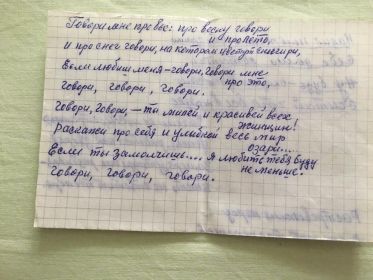 Говори мне про все: про весну говори
и про лето,
и про снег говори, на котором цветут снегири,
Если любишь меня – говори, говори мне
про это,
говори, говори, говори.
Говори, говори, – ты милей и красивей всех
женщин!
Расскажи про себя и улыбкой весь мир
озари...
Если ты замолчишь.... я любить тебя буду
не меньше.
Говори, говори, говори.